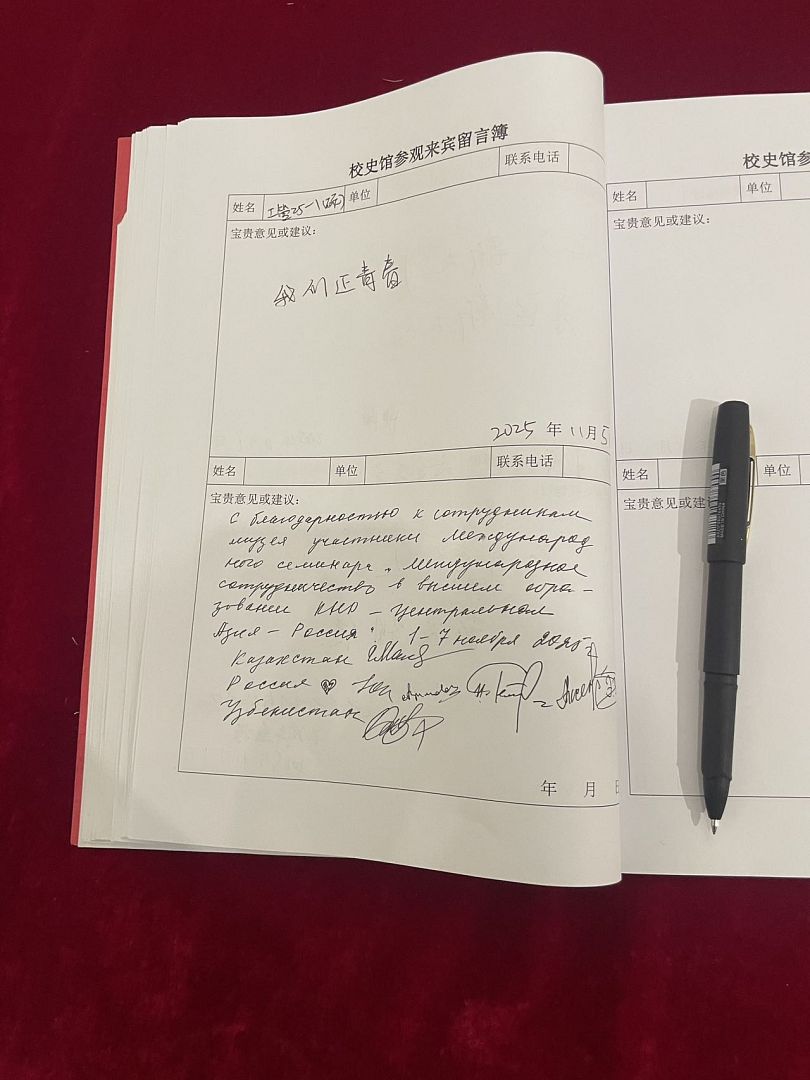 校史馆参观来宾留言簿
姓名 单位 联系电话
宝贵意见或建议：
我们正青春
2025 年 11月5
姓名 单位 联系电话
宝贵意见或建议：
С благодарностью к сотрудникам
музея участники Международ
ного семинара „Международное
сотрудничество в высшем обра-
зовании КНР – Центральная
Азия – Россия" 1–7 ноября 2025
Казахстан
Россия
Узбекистан
年 月
校史馆参
姓名 单位
宝贵意见或建议：
姓名 单位
宝贵意见或建